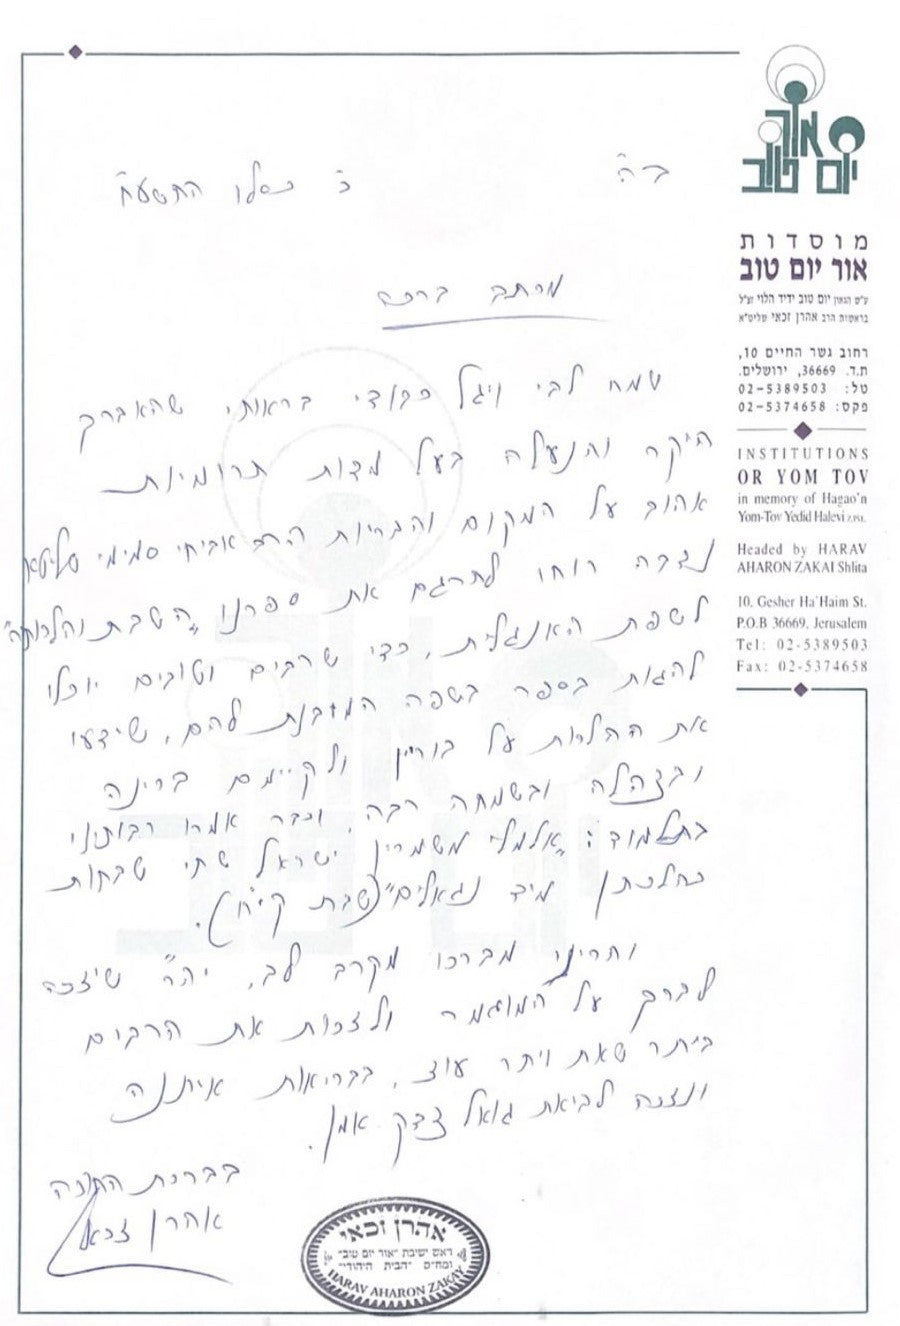 אור
יום טוב
מוסדות
אור יום טוב
ע"ש הגאון יום טוב ידיד הלוי זצ"ל
בראשות הרב אהרן זכאי שליט"א
רחוב גשר החיים 10,
ת.ד. 36669, ירושלים.
טל: 02-5389503
פקס: 02-5374658
INSTITUTIONS
OR YOM TOV
in memory of Hagao'n
Yom-Tov Yedid Halevi Z.P.S.L.
Headed by HARAV
AHARON ZAKAI Shlita
10. Gesher Ha'Haim St.
P.O.B 36669. Jerusalem
Tel: 02-5389503
Fax: 02-5374658
ב"ה
כ' כסלו התשע"ח
מכתב ברכה
שמח לבי ויגל כבודי בראותי שהאברך
היקר והנעלה בעל מדות תרומיות
אהוב על המקום והבריות הרב אביחי סמימי שליט"א
נדבה רוחו לתרגם את ספרנו "השבת והלכותיה"
לשפת האנגלית, כדי שרבים וטובים יוכלו
להגות בספר בשפה המובנת להם, שידעו
את ההלכות על בוריין ולקיימם ברינה
ובצהלה ובשמחה רבה, וכבר אמרו רבותינו
בתלמוד: "אלמלי משמרין ישראל שתי שבתות
כהלכתן מיד נגאלים" (שבת קי"ח).
והריני מברכו מקרב לב, יה"ר שיזכה
לברך על המוגמר ולזכות את הרבים
ביתר שאת ויתר עוצ, בבריאות איתנה
ונזכה לביאת גואל צדק אמן.
בברכת התורה
אהרן זכאי
אהרן זכאי
ראש ישיבת "אור יום טוב"
ומח"ס "הבית היהודי"
HARAV AHARON ZAKAY